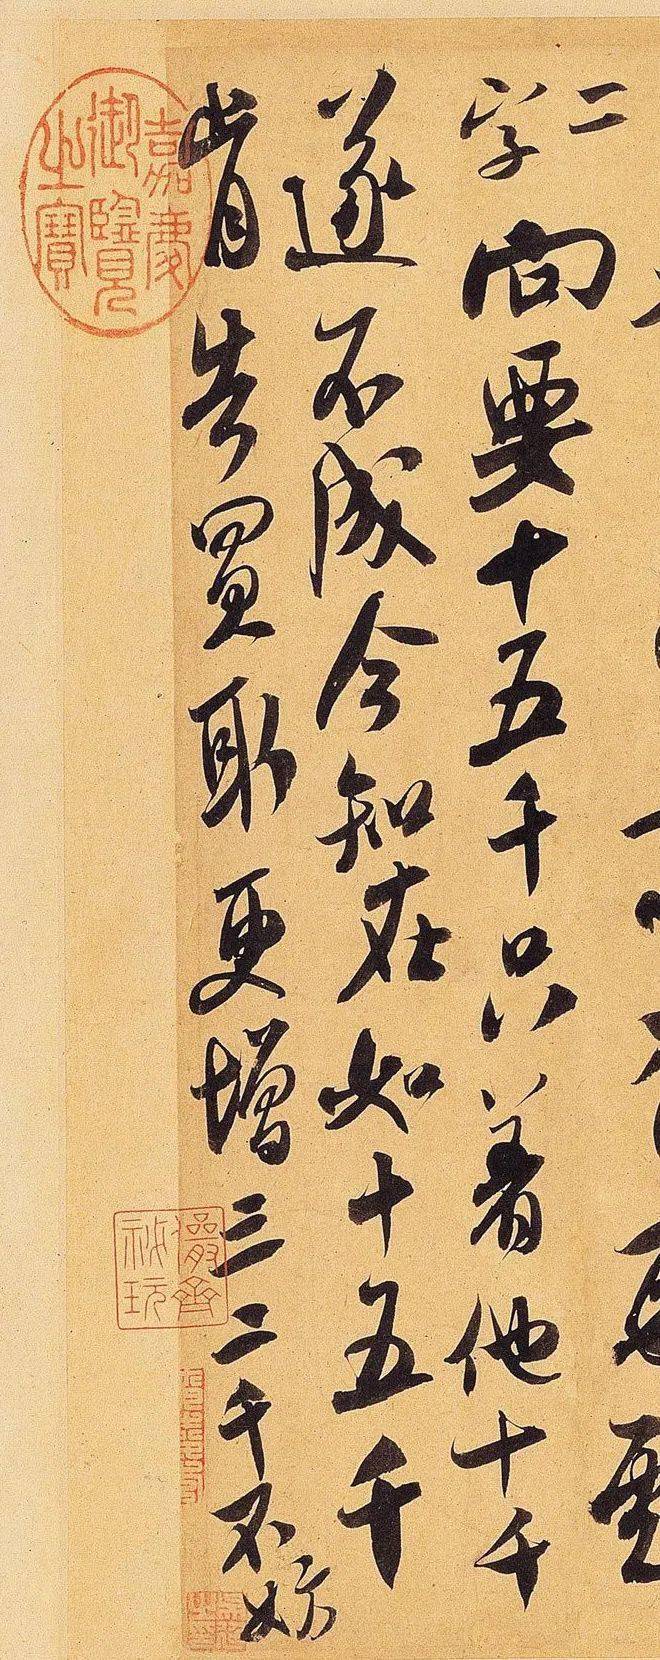 二字問要十五千只著他十千
遂不成今知在如十五千
肯告買取更增三二千不妨
嘉慶御覽之寶
儼齋秘玩